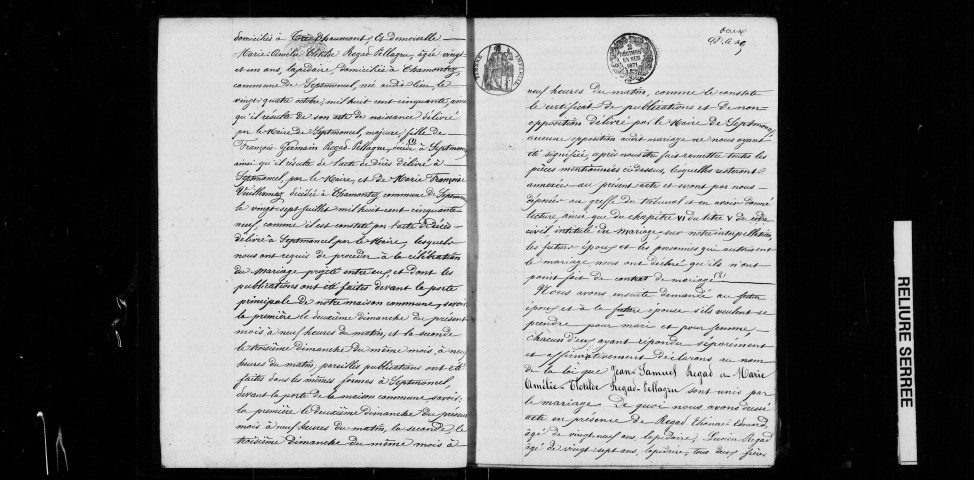 domiciliés à Très épaumont, Et Demoiselle
Marie Amélie Clotilde Regad Pellagru, âgée vingt
et un ans, lapidaire, domiciliée à Chamontez,
commune de Septmoncel, née audit lieu, le
vingt quatre octobre mil huit cent cinquante, ainsi
qu'il résulte de son acte de naissance délivré
par le Maire de Septmoncel, majeure, fille de
François Germain Regad Pellagru, à Septmoncel
ainsi qu'il résulte de l'acte de Décès délivré à
Septmoncel, par le Maire, et de Marie Françoise
Vuilhermoz décédée à Chamontez commune de
le vingt sept juillet mil huit cent cinquante
neuf, comme il est constaté par l'acte de Décès
délivré à Septmoncel par le Maire, lesquels
nous ont requis de procéder à la célébration
du mariage projeté entre eux, et dont les
publications ont été faites devant la porte
principale de notre maison commune, savoir
la première le deuxième dimanche du présent
mois à neuf heures du matin, et la seconde
le troisième dimanche du même mois, à neuf
heures du matin, pareilles publications ont été
faites dans les mêmes formes à Septmoncel
devant la porte de la maison commune savoir:
la première le Deuxième dimanche du présent
mois à neuf heures du matin, la seconde, le
troisième dimanche du même mois à
2
EN SUS
1871
deux
neuf heures du matin, comme le constate
le certificat de publications et de non
opposition délivré par le Maire de Septmoncel,
aucune opposition audit mariage ne nous ayant
été signifiée, après nous être fait remettre toutes les
pièces mentionnées ci dessus, lesquelles resteront
annexées au présent acte et seront par nous
déposées au greffe du tribunal et en avoir donné
lecture, ainsi que du chapitre VI du titre V du code
civil intitulé du mariage, sur notre interpellation,
les futurs époux et les personnes qui autorisent
le mariage nous ont déclaré qu'ils n'ont
point fait de contrat de mariage (2)
Nous avons ensuite demandé au futur
époux et à la future épouse s'ils veulent se
prendre pour mari et pour femme
chacun d'eux ayant répondu séparément
et affirmativement Déclarons au nom
de la loi que Jean-Samuel Regad et Marie
Amélie Clotilde Regad-Pellagru sont unis par
le mariage De quoi nous avons dressé
acte en présence de Regad Edouard,
âgé de vingt neuf ans, lapidaire, Regad
âgé de vingt sept ans, lapidaire, tous deux frères
RELIURE SERREE